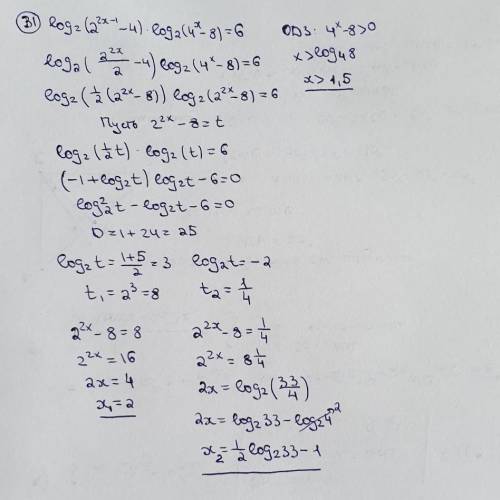 31 log₂(2²ˣ⁻¹-4)·log₂(4ˣ-8)=6
ОДЗ: 4ˣ-8>0
x>log₄8
x>1,5
log₂(2²ˣ/2-4)log₂(4ˣ-8)=6
log₂(½(2²ˣ-8))log₂(2²ˣ-8)=6
Пусть 2²ˣ-8=t
log₂(½t)·log₂(t)=6
(-1+log₂t)log₂t-6=0
log₂²t-log₂t-6=0
D=1+24=25
log₂t=(1+5)/2=3
t₁=2³=8
2²ˣ-8=8
2²ˣ=16
2x=4
x₁=2
log₂t=-2
t₂=1/4
2²ˣ-8=1/4
2²ˣ=8 1/4
2x=log₂(33/4)
2x=log₂33-log₂4 2
x₂=½log₂33-1